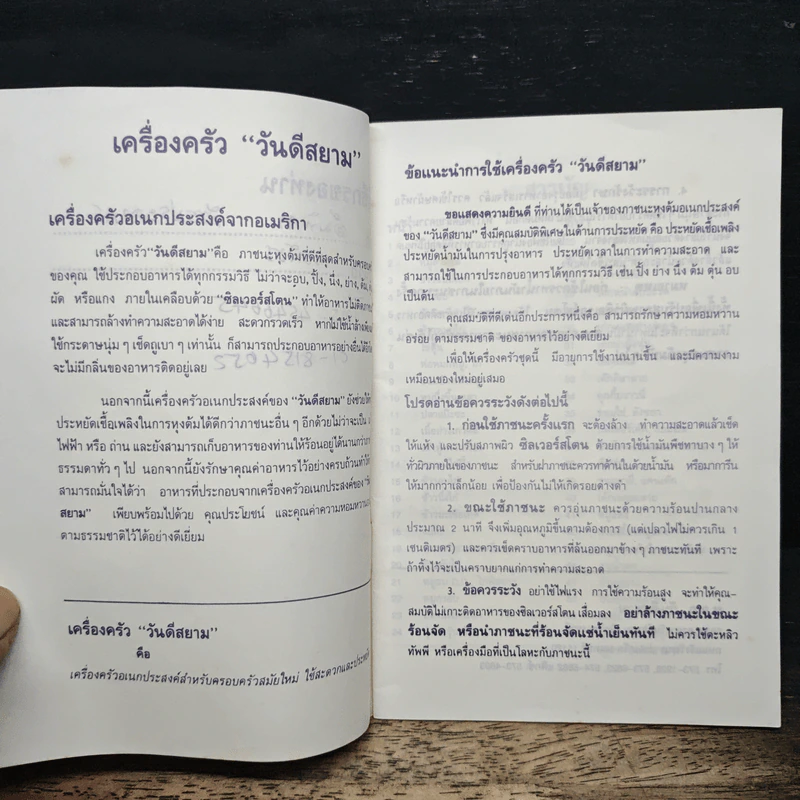 เครื่องครัว “วันดีสยาม”
เครื่องครัวอเนกประสงค์จากอเมริกา
เครื่องครัว“วันดีสยาม”คือ ภาชนะหุงต้มที่ดีที่สุดสำหรับครอบ
ของคุณ ใช้ประกอบอาหารได้ทุกกรรมวิธี ไม่ว่าจะอบ, ปิ้ง, นึ่ง, ย่าง, ต้ม,
ผัด หรือแกง ภายในเคลือบด้วย “ซิลเวอร์สโตน” ทำให้อาหารไม่ติด
และสามารถล้างทำความสะอาดได้ง่าย สะดวกรวดเร็ว หากไม่ใช้น้ำล้าง
ใช้กระดาษนุ่ม ๆ เช็ดถูเบา ๆ เท่านั้น ก็สามารถประกอบอาหารอย่างอื่นได้
จะไม่มีกลิ่นของอาหารติดอยู่เลย
นอกจากนี้เครื่องครัวอเนกประสงค์ของ “วันดีสยาม” ยังช่วยให้
ประหยัดเชื้อเพลิงในการหุงต้มได้ดีกว่าภาชนะอื่น ๆ อีกด้วยไม่ว่าจะเป็น
ไฟฟ้า หรือ ถ่าน และยังสามารถเก็บอาหารของท่านให้ร้อนอยู่ได้นานกว่า
ธรรมดาทั่ว ๆ ไป นอกจากนี้ยังรักษาคุณค่าอาหารไว้อย่างครบถ้วนทำให้
สามารถมั่นใจได้ว่า อาหารที่ประกอบจากเครื่องครัวอเนกประสงค์ของ
สยาม” เพียบพร้อมไปด้วย คุณประโยชน์ และคุณค่าความหอมหวาน
ตามธรรมชาติไว้ได้อย่างดีเยี่ยม
เครื่องครัว “วันดีสยาม”
คือ
เครื่องครัวอเนกประสงค์สำหรับครอบครัวสมัยใหม่ ใช้สะดวกและ
ข้อแนะนำการใช้เครื่องครัว “วันดีสยาม”
ขอแสดงความยินดี ที่ท่านได้เป็นเจ้าของภาชนะหุงต้มอเนกประสงค์
ของ “วันดีสยาม” ซึ่งมีคุณสมบัติพิเศษในด้านการประหยัด คือ ประหยัดเชื้อเพลิง
ประหยัดน้ำมันในการปรุงอาหาร ประหยัดเวลาในการทำความสะอาด และ
สามารถใช้ในการประกอบอาหารได้ทุกกรรมวิธี เช่น ปิ้ง ย่าง นึ่ง ต้ม ตุ๋น อบ
เป็นต้น
คุณสมบัติที่ดีเด่นอีกประการหนึ่งคือ สามารถรักษาความหอมหวาน
อร่อย ตามธรรมชาติ ของอาหารไว้อย่างดีเยี่ยม
เพื่อให้เครื่องครัวชุดนี้ มีอายุการใช้งานนานขึ้น และมีความงาม
เหมือนของใหม่อยู่เสมอ
โปรดอ่านข้อควรระวังดังต่อไปนี้
1. ก่อนใช้ภาชนะครั้งแรก จะต้องล้าง ทำความสะอาดแล้วเช็ด
ให้แห้ง และปรับสภาพผิว ซิลเวอร์สโตน ด้วยการใช้น้ำมันพืชทาบาง ๆ ให้
ทั่วผิวภายในของภาชนะ สำหรับฝาภาชนะควรทาด้านในด้วยน้ำมัน หรือมาการีน
ให้มากกว่าเล็กน้อย เพื่อป้องกันไม่ให้เกิดรอยด่างดำ
2. ขณะใช้ภาชนะ ควรอุ่นภาชนะด้วยความร้อนปานกลาง
ประมาณ 2 นาที จึงเพิ่มอุณหภูมิขึ้นตามต้องการ (แต่เปลวไฟไม่ควรเกิน 1
เซนติเมตร) และควรเช็ดคราบอาหารที่ล้นออกมาข้าง ๆ ภาชนะทันที เพราะ
ถ้าทิ้งไว้จะเป็นคราบยากแก่การทำความสะอาด
3. ข้อควรระวัง อย่าใช้ไฟแรง การใช้ความร้อนสูง จะทำให้คุณ-
สมบัติไม่เกาะติดอาหารของซิลเวอร์สโตน เสื่อมลง อย่าล้างภาชนะในขณะ
ร้อนจัด หรือนำภาชนะที่ร้อนจัดแช่น้ำเย็นทันที ไม่ควรใช้ตะหลิว
ทัพพี หรือเครื่องมือที่เป็นโลหะกับภาชนะนี้